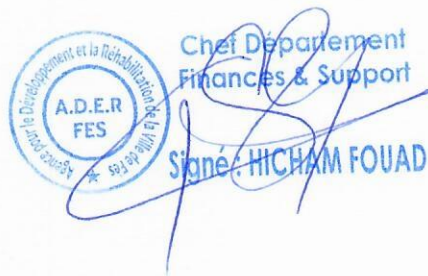 Agence pour le Développement et la Réhabilitation de la Ville de Fès
A.D.E.R
FES
Chef Département
Finances & Support
Signé : HICHAM FOUAD